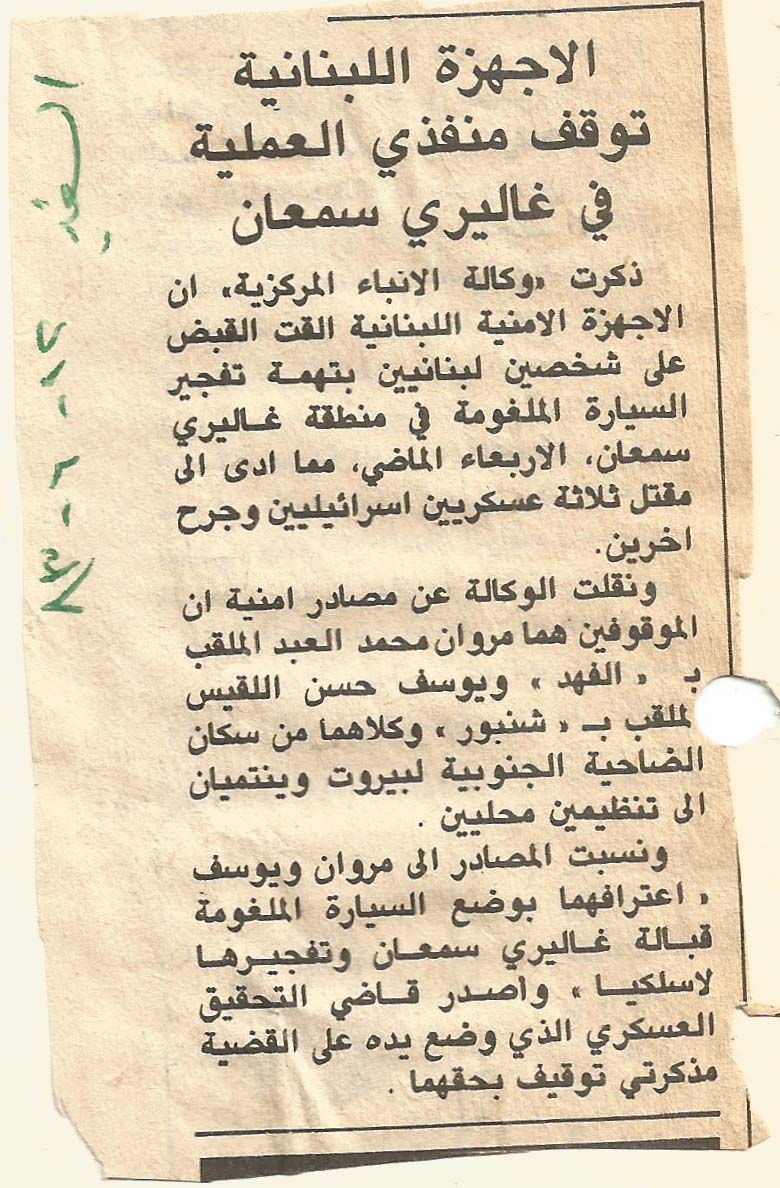 الاجهزة اللبنانية
توقف منفذي العملية
في غاليري سمعان
ذكرت «وكالة الانباء المركزية» ان
الاجهزة الامنية اللبنانية القت القبض
على شخصين لبنانيين بتهمة تفجير
السيارة الملغومة في منطقة غاليري
سمعان، الاربعاء الماضي، مما ادى الى
مقتل ثلاثة عسكريين اسرائيليين وجرح
اخرين.
ونقلت الوكالة عن مصادر امنية ان
الموقوفين هما مروان محمد العبد الملقب
بـ « الفهد » ويوسف حسن اللقيس
لملقب بـ « شنبور » وكلاهما من سكان
الضاحية الجنوبية لبيروت وينتميان
الى تنظيمين محليين .
ونسبت المصادر الى مروان ويوسف
« اعترافهما بوضع السيارة الملغومة
قبالة غاليري سمعان وتفجيرها
لاسلكيا » واصدر قاضي التحقيق
العسكري الذي وضع يده على القضية
مذكرتي توقيف بحقهما .
السفير ١٢ - ٦ - ٨٣